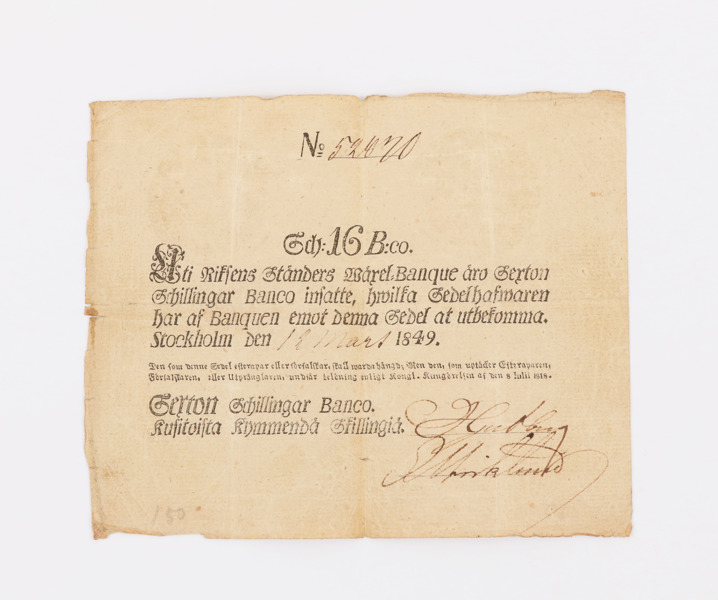 No 52670
Sch: 16 B:co.
Uti Riksens Ständers Wäxel-Banque äro Sexton
Schillingar Banco insatte, hwilka Sedelhafwaren
har af Banquen emot denna Sedel at utbekomma.
Stockholm den 18 Mars 1849.
Den som denne Sedel efterapar eller förfalskar, skall warda hängd; Men den, som uptäcker Efteraparen,
Förfalskaren, eller Utprånglaren, undfår belöning enligt Kongl. Kungörelsen af den 8 Julii 1818.
Sexton Schillingar Banco.
Kusitoista Kymmendä Skillingiä.
150